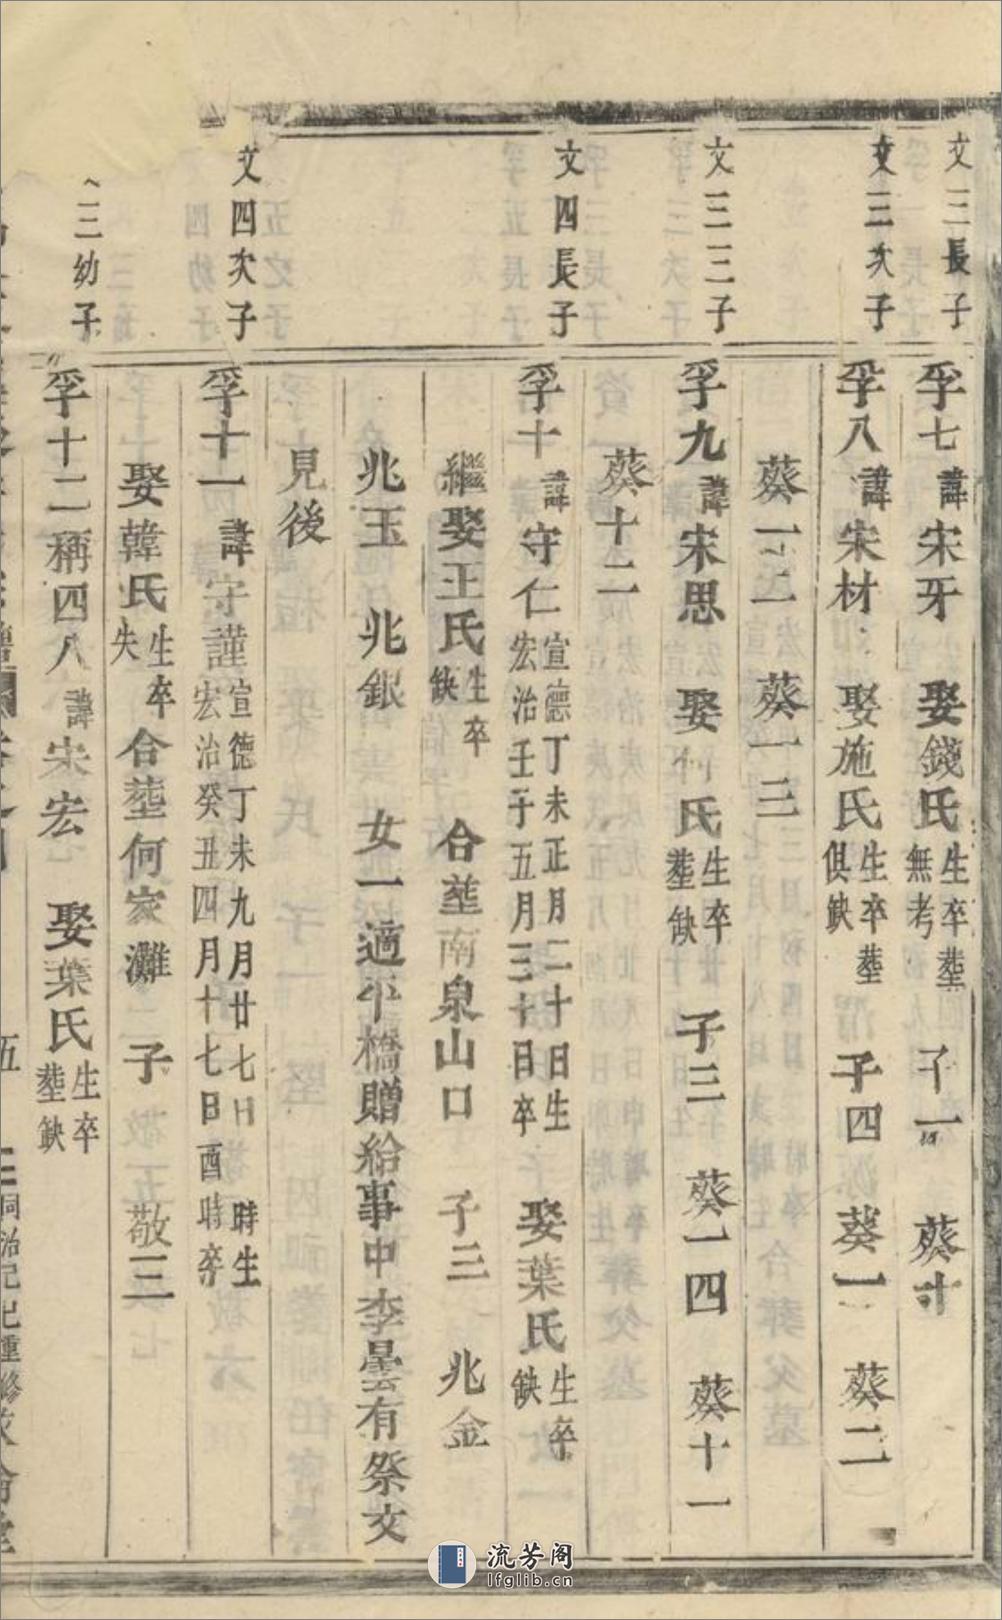 文三長子
孚七 諱宋牙 娶錢氏生卒塟無考 子一 葵十
文三次子
孚八 諱宋材 娶施氏生卒塟俱缺 子四 葵一 葵二
葵一二 葵一三
文三三子
孚九 諱宋思 娶 氏生卒塟缺 子三 葵一四 葵十一
葵十二
文四長子
孚十 諱守仁宣德丁未正月二十日生宏治壬子五月三十日卒 娶葉氏生卒缺
繼娶王氏生卒缺 合塟南泉山口 子三 兆金
兆玉 兆銀 女一適平橋贈給事中李曇有祭文
見後
文四次子
孚十一 諱守謹宣德丁未九月廿七日 時生宏治癸丑四月十七日酉時卒
娶韓氏生卒失 合塟何家灘 子二 敬三
三幼子
孚十二稱四八 諱宋宏 娶葉氏生卒塟缺
五
同治己巳重修
流芳阁
lfglib.cn